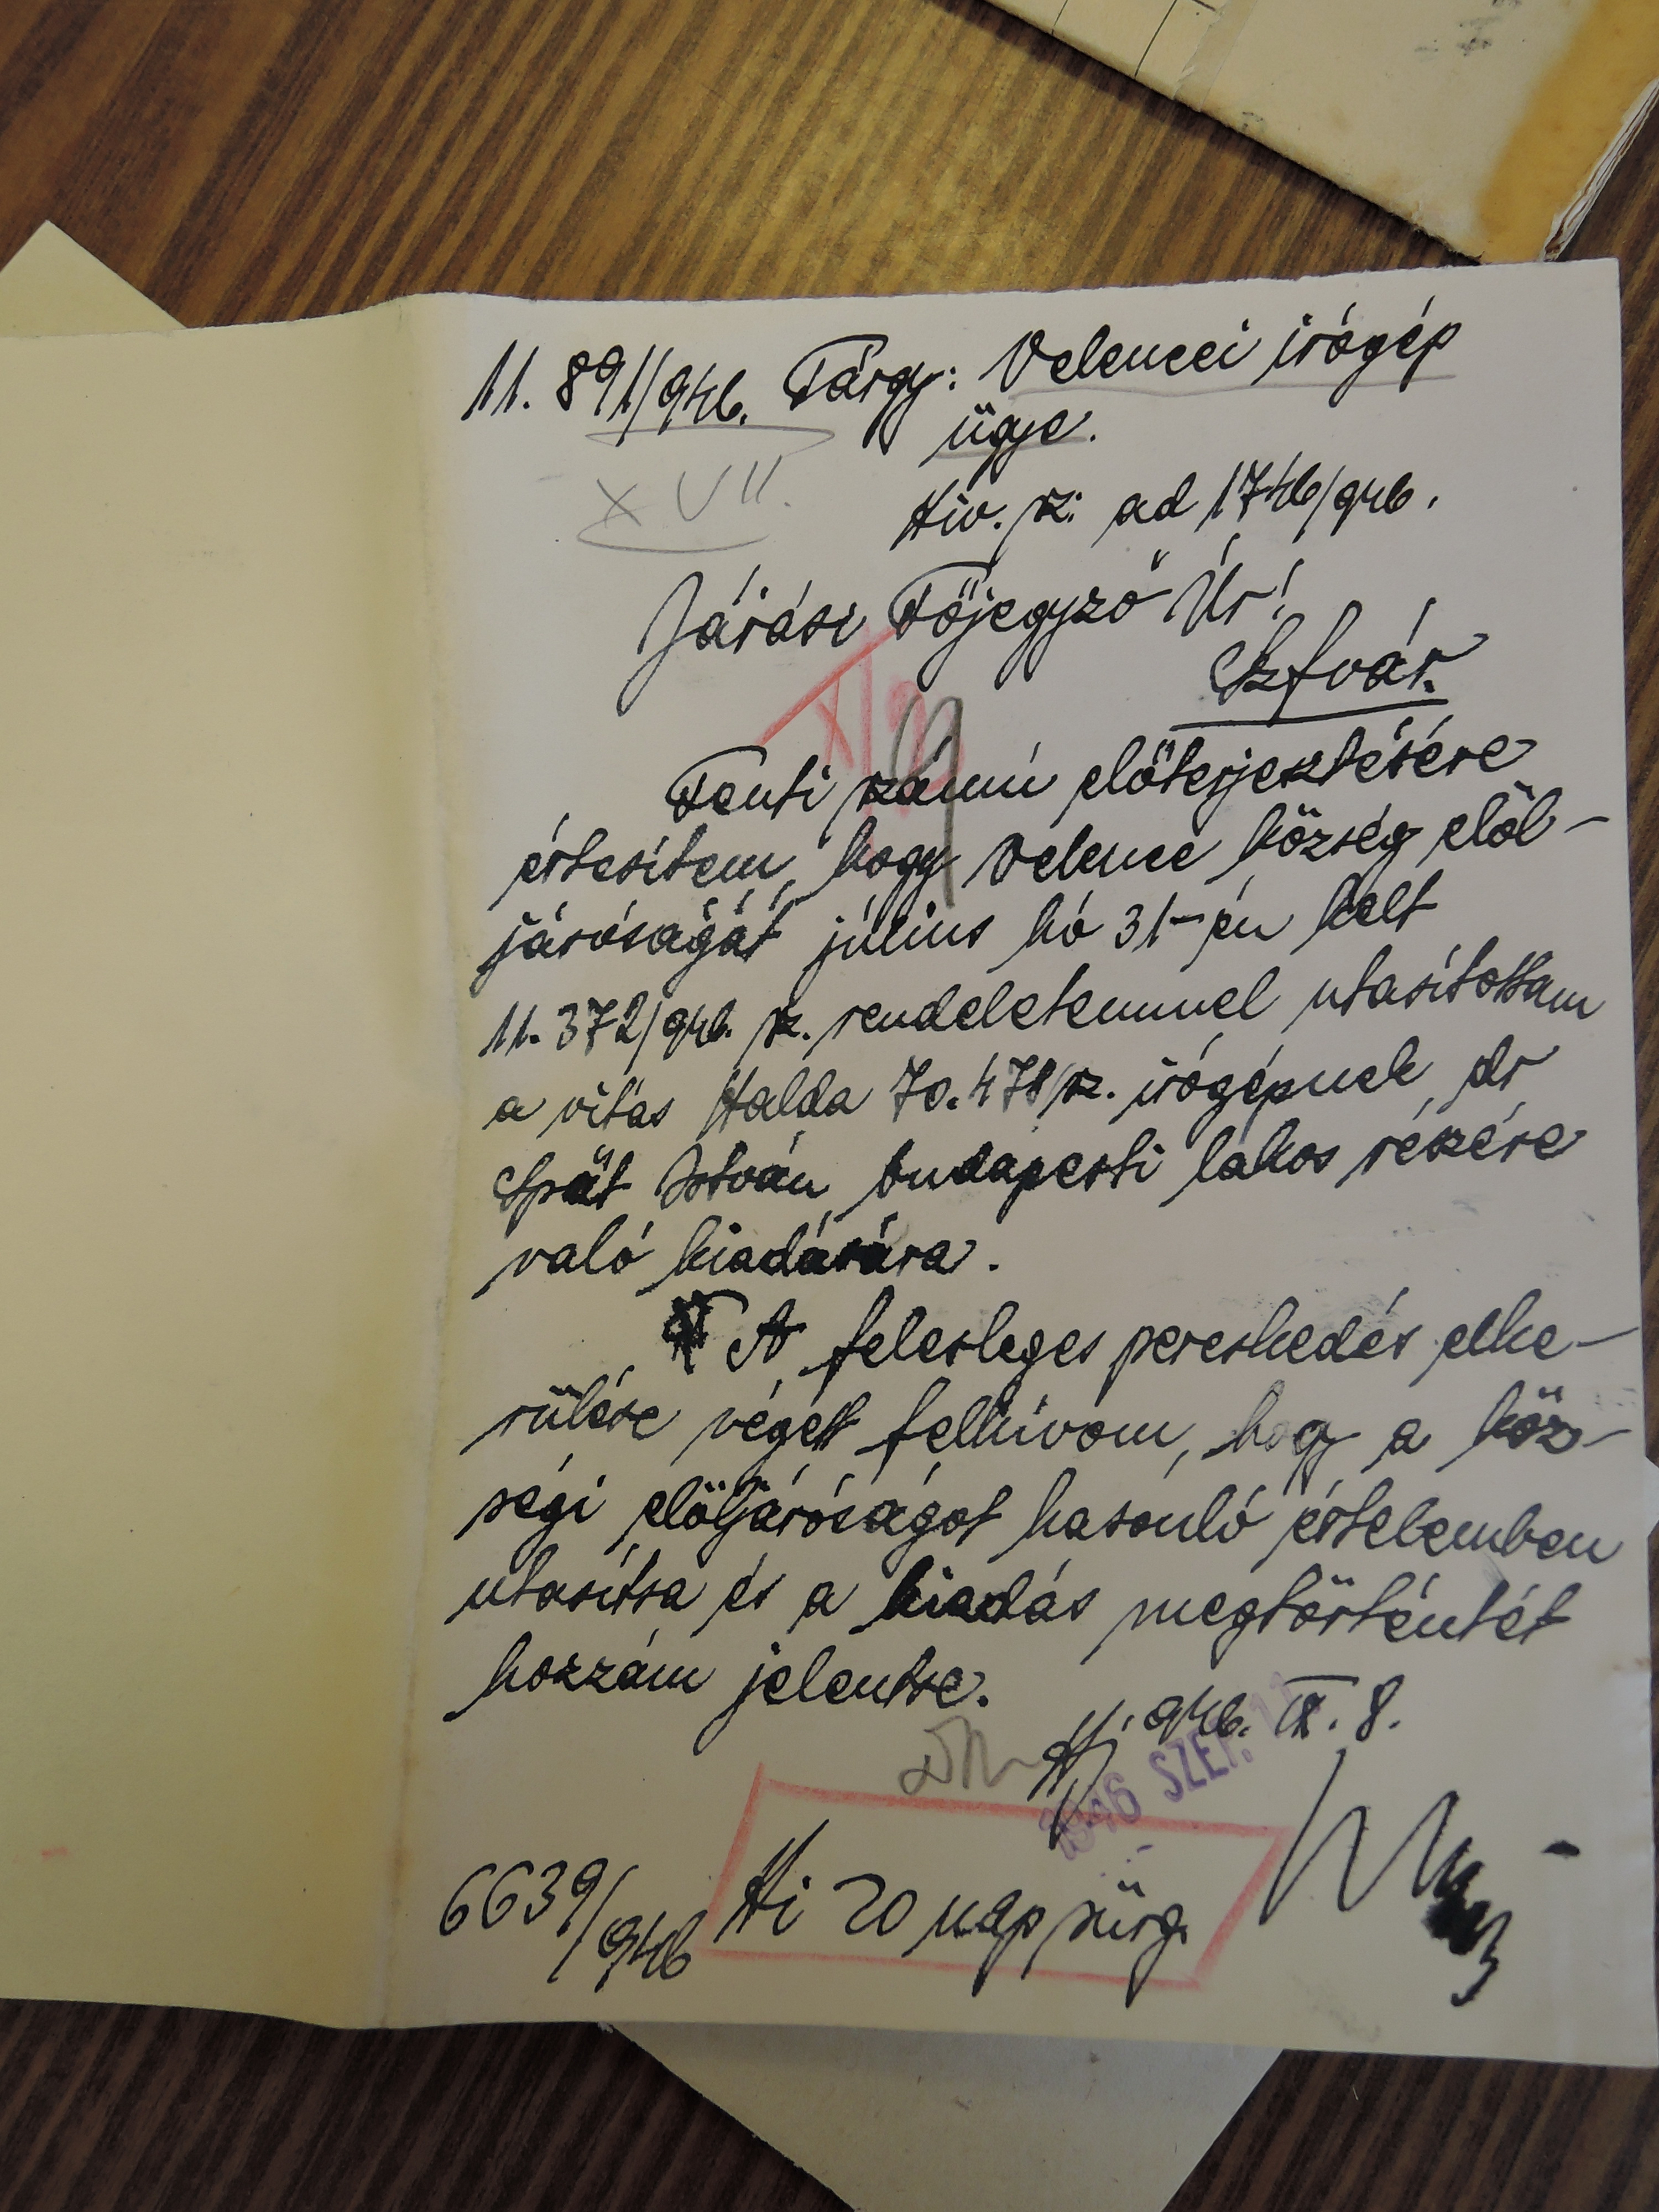 11.891/946. Tárgy: Velencei irógép
ügye.
XVII.
Hiv. sz: ad 1746/946.
Járási Főjegyző Úr!
Szfvár.
Fenti számú előterjesztésére
értesitem, hogy Velence község elöl-
járóságát július hó 31-én kelt
11.372/946. sz. rendeletemmel utasitottam
a vitás Halda 70.478/sz. irógépnek, dr
Spät István budapesti lakos részére
való kiadására.
A felesleges pereskedés elke-
rülése végett felhivom, hogy a köz-
ségi elöljáróságot hasonló értelemben
utasitsa és a kiadás megtörténtét
hozzám jelentse.
946. IX. 8.
1946 SZEP. 11
6639/946
Hi 20 nap sürg.